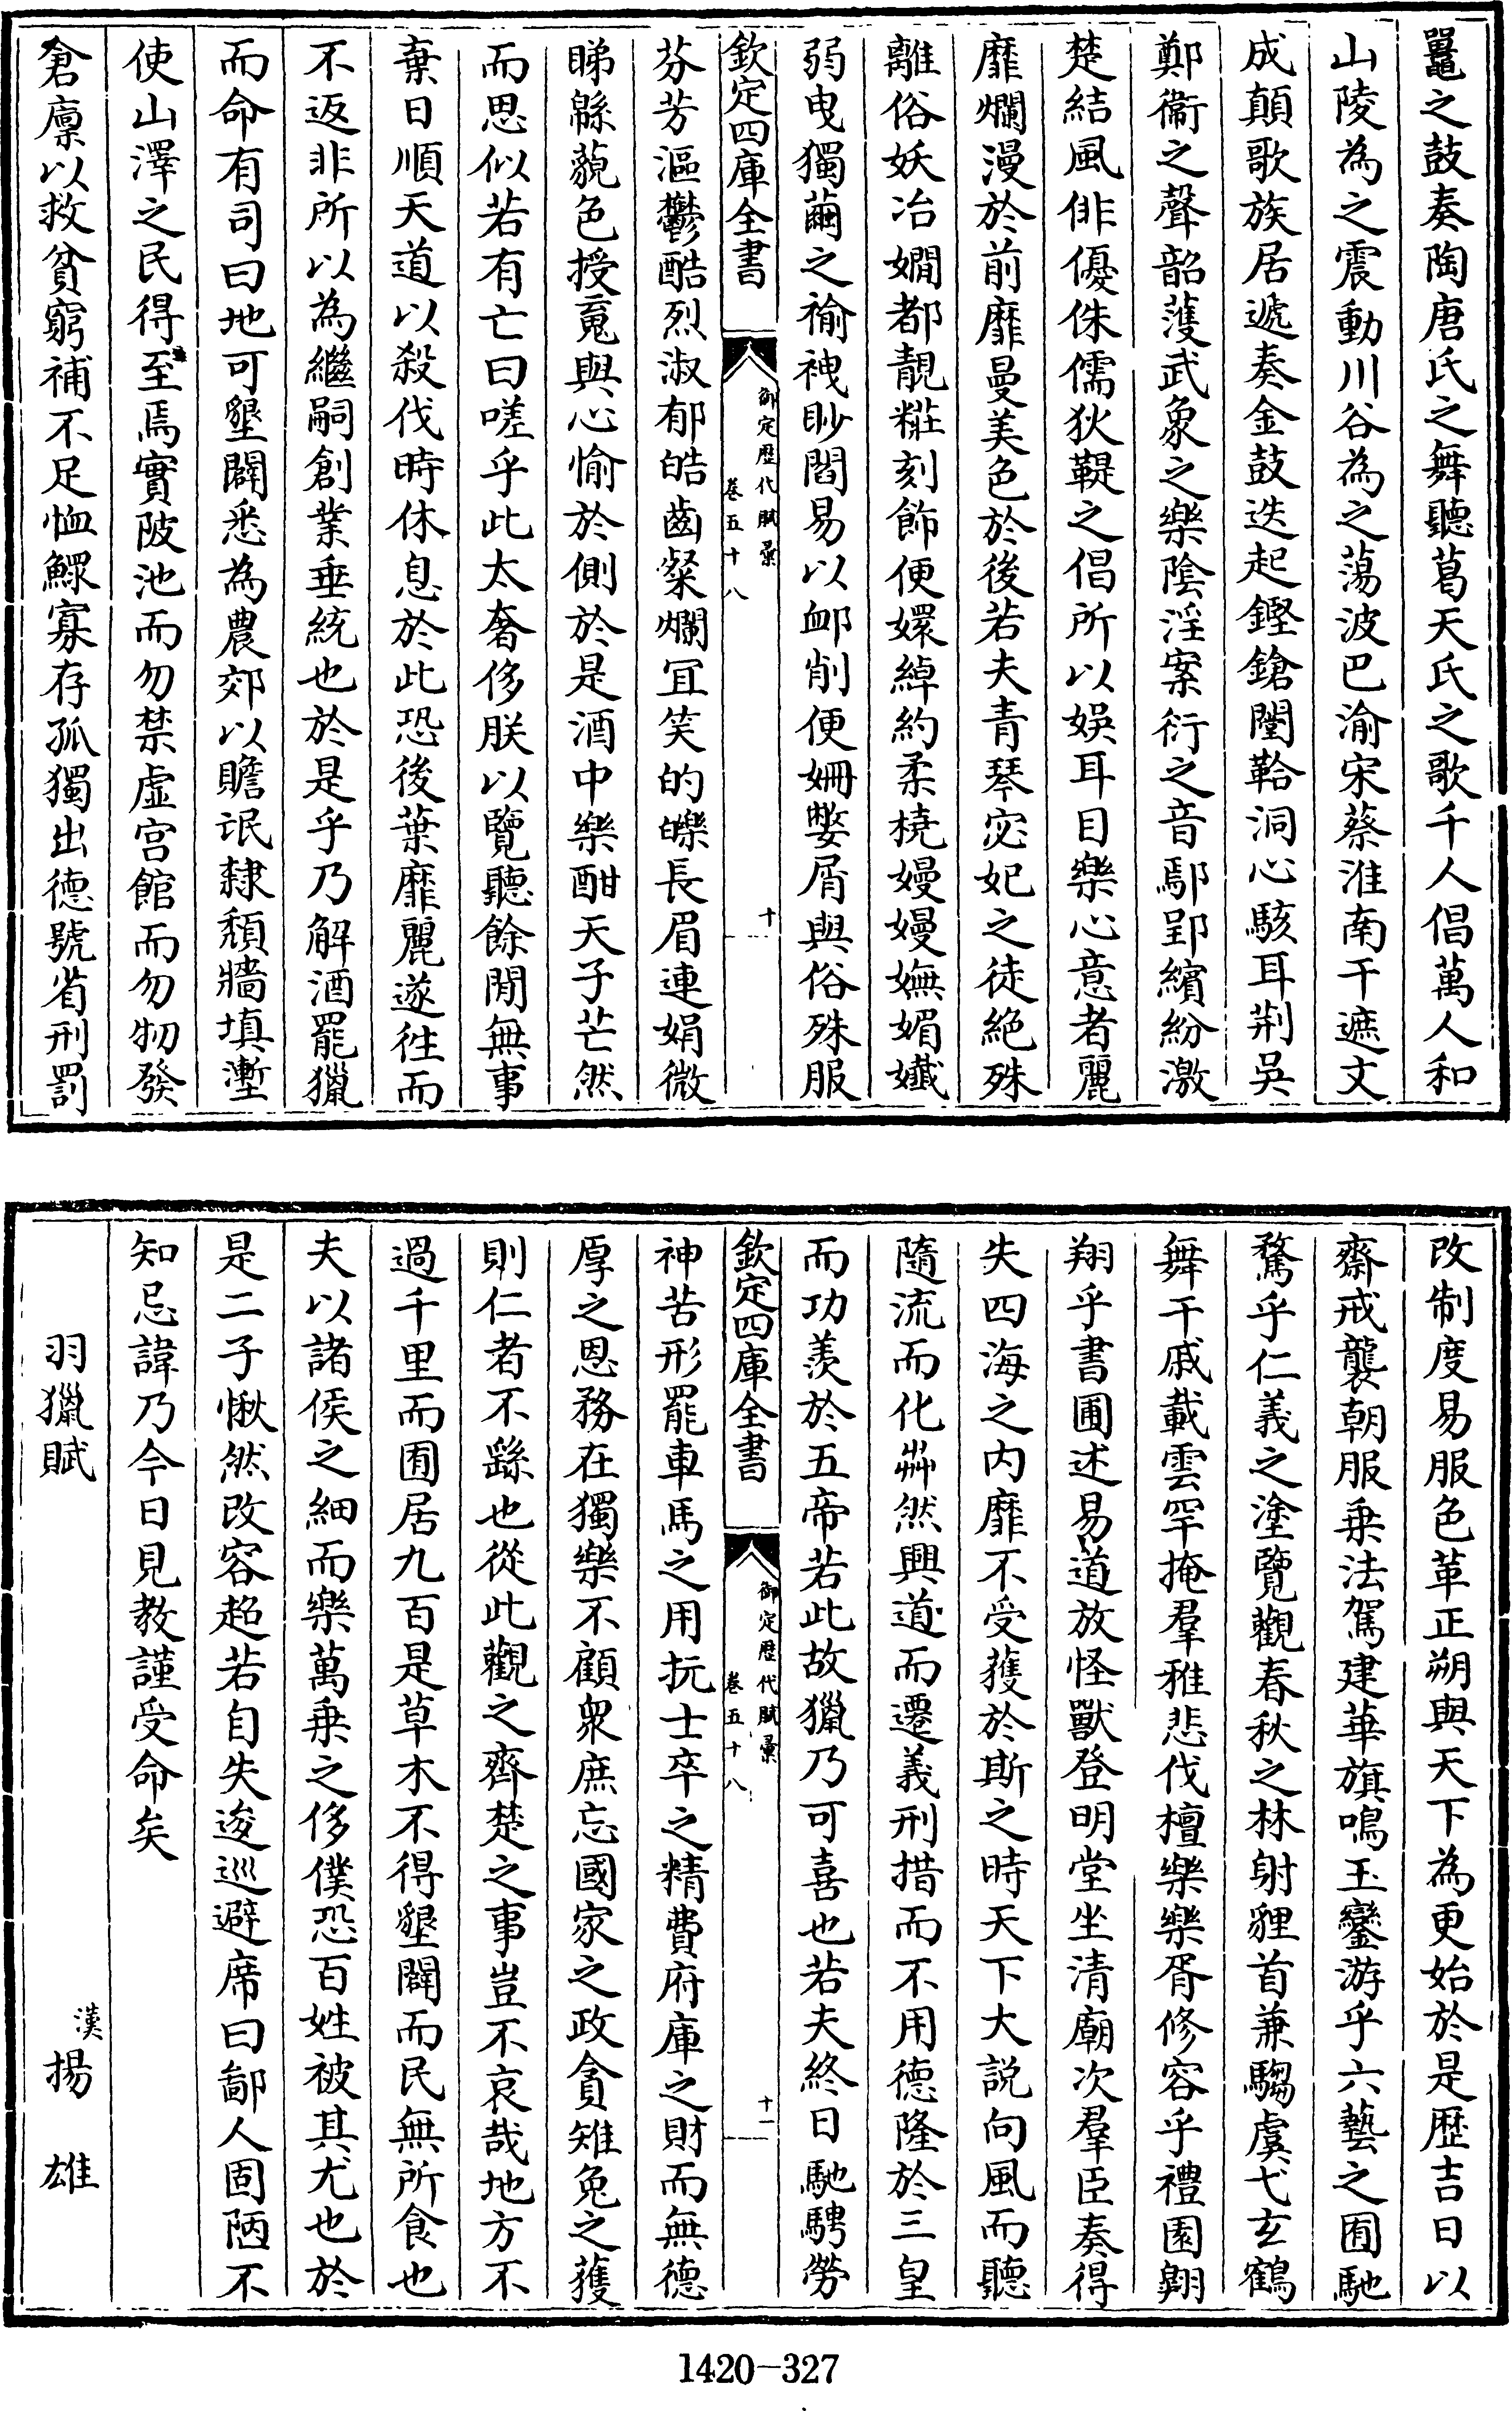 鼉之鼓奏陶唐氏之舞聽葛天氏之歌千人倡萬人和
山陵為之震動川谷為之蕩波巴渝宋蔡淮南干遮文
成顛歌族居遞奏金鼓迭起鏗鎗闛鞈洞心駭耳荆吳
鄭衞之聲韶濩武象之樂陰淫案衍之音鄢郢繽紛激
楚結風俳優侏儒狄鞮之倡所以娛耳目樂心意者麗
靡爛漫於前靡曼美色於後若夫青琴宓妃之徒絶殊
離俗妖冶嫺都靚糚刻飾便嬛綽約柔橈嫚嫚嫵媚孅
弱曳獨繭之褕袣眇閻易以䘏削便姍嫳屑與俗殊服
欽定四庫全書
御定歴代賦彙
卷五十八
十
芬芳漚鬱酷烈淑郁皓齒粲爛宜笑的皪長眉連娟微
睇緜藐色授䰟與心愉於側於是酒中樂酣天子芒然
而思似若有亡曰嗟乎此太奢侈朕以覽聽餘閒無事
棄日順天道以殺伐時休息於此恐後葉靡麗遂徃而
不返非所以為繼嗣創業垂統也於是乎乃解酒罷獵
而命有司曰地可墾闢悉為農郊以贍氓隸頹牆填壍
使山澤之民得至焉實陂池而勿禁虛宮館而勿牣發
倉廩以救貧窮補不足恤鰥寡存孤獨出德號省刑罰
改制度易服色革正朔與天下為更始於是歴吉日以
齋戒襲朝服乗法駕建華旗鳴玉鸞游乎六藝之囿馳
騖乎仁義之塗覽觀春秋之林射貍首兼騶虞弋玄鶴
舞干戚載雲䍐掩羣雅悲伐檀樂樂胥修容乎禮園翺
翔乎書圃述易道放怪獸登明堂坐清廟次羣臣奏得
失四海之内靡不受獲於斯之時天下大説向風而聽
隨流而化芔然興道而遷義刑措而不用德隆於三皇
而功羨於五帝若此故獵乃可喜也若夫終日馳騁勞
欽定四庫全書
御定歴代賦彙
卷五十八
十一
神苦形罷車馬之用抏士卒之精費府庫之財而無德
厚之恩務在獨樂不顧衆庶忘國家之政貪雉兔之獲
則仁者不繇也從此觀之齊楚之事豈不哀哉地方不
過千里而囿居九百是草木不得墾闢而民無所食也
夫以諸侯之細而樂萬乗之侈僕恐百姓被其尤也於
是二子愀然改容超若自失逡巡避席曰鄙人固陋不
知忌諱乃今日見教謹受命矣
羽獵賦
漢揚雄
1420-327